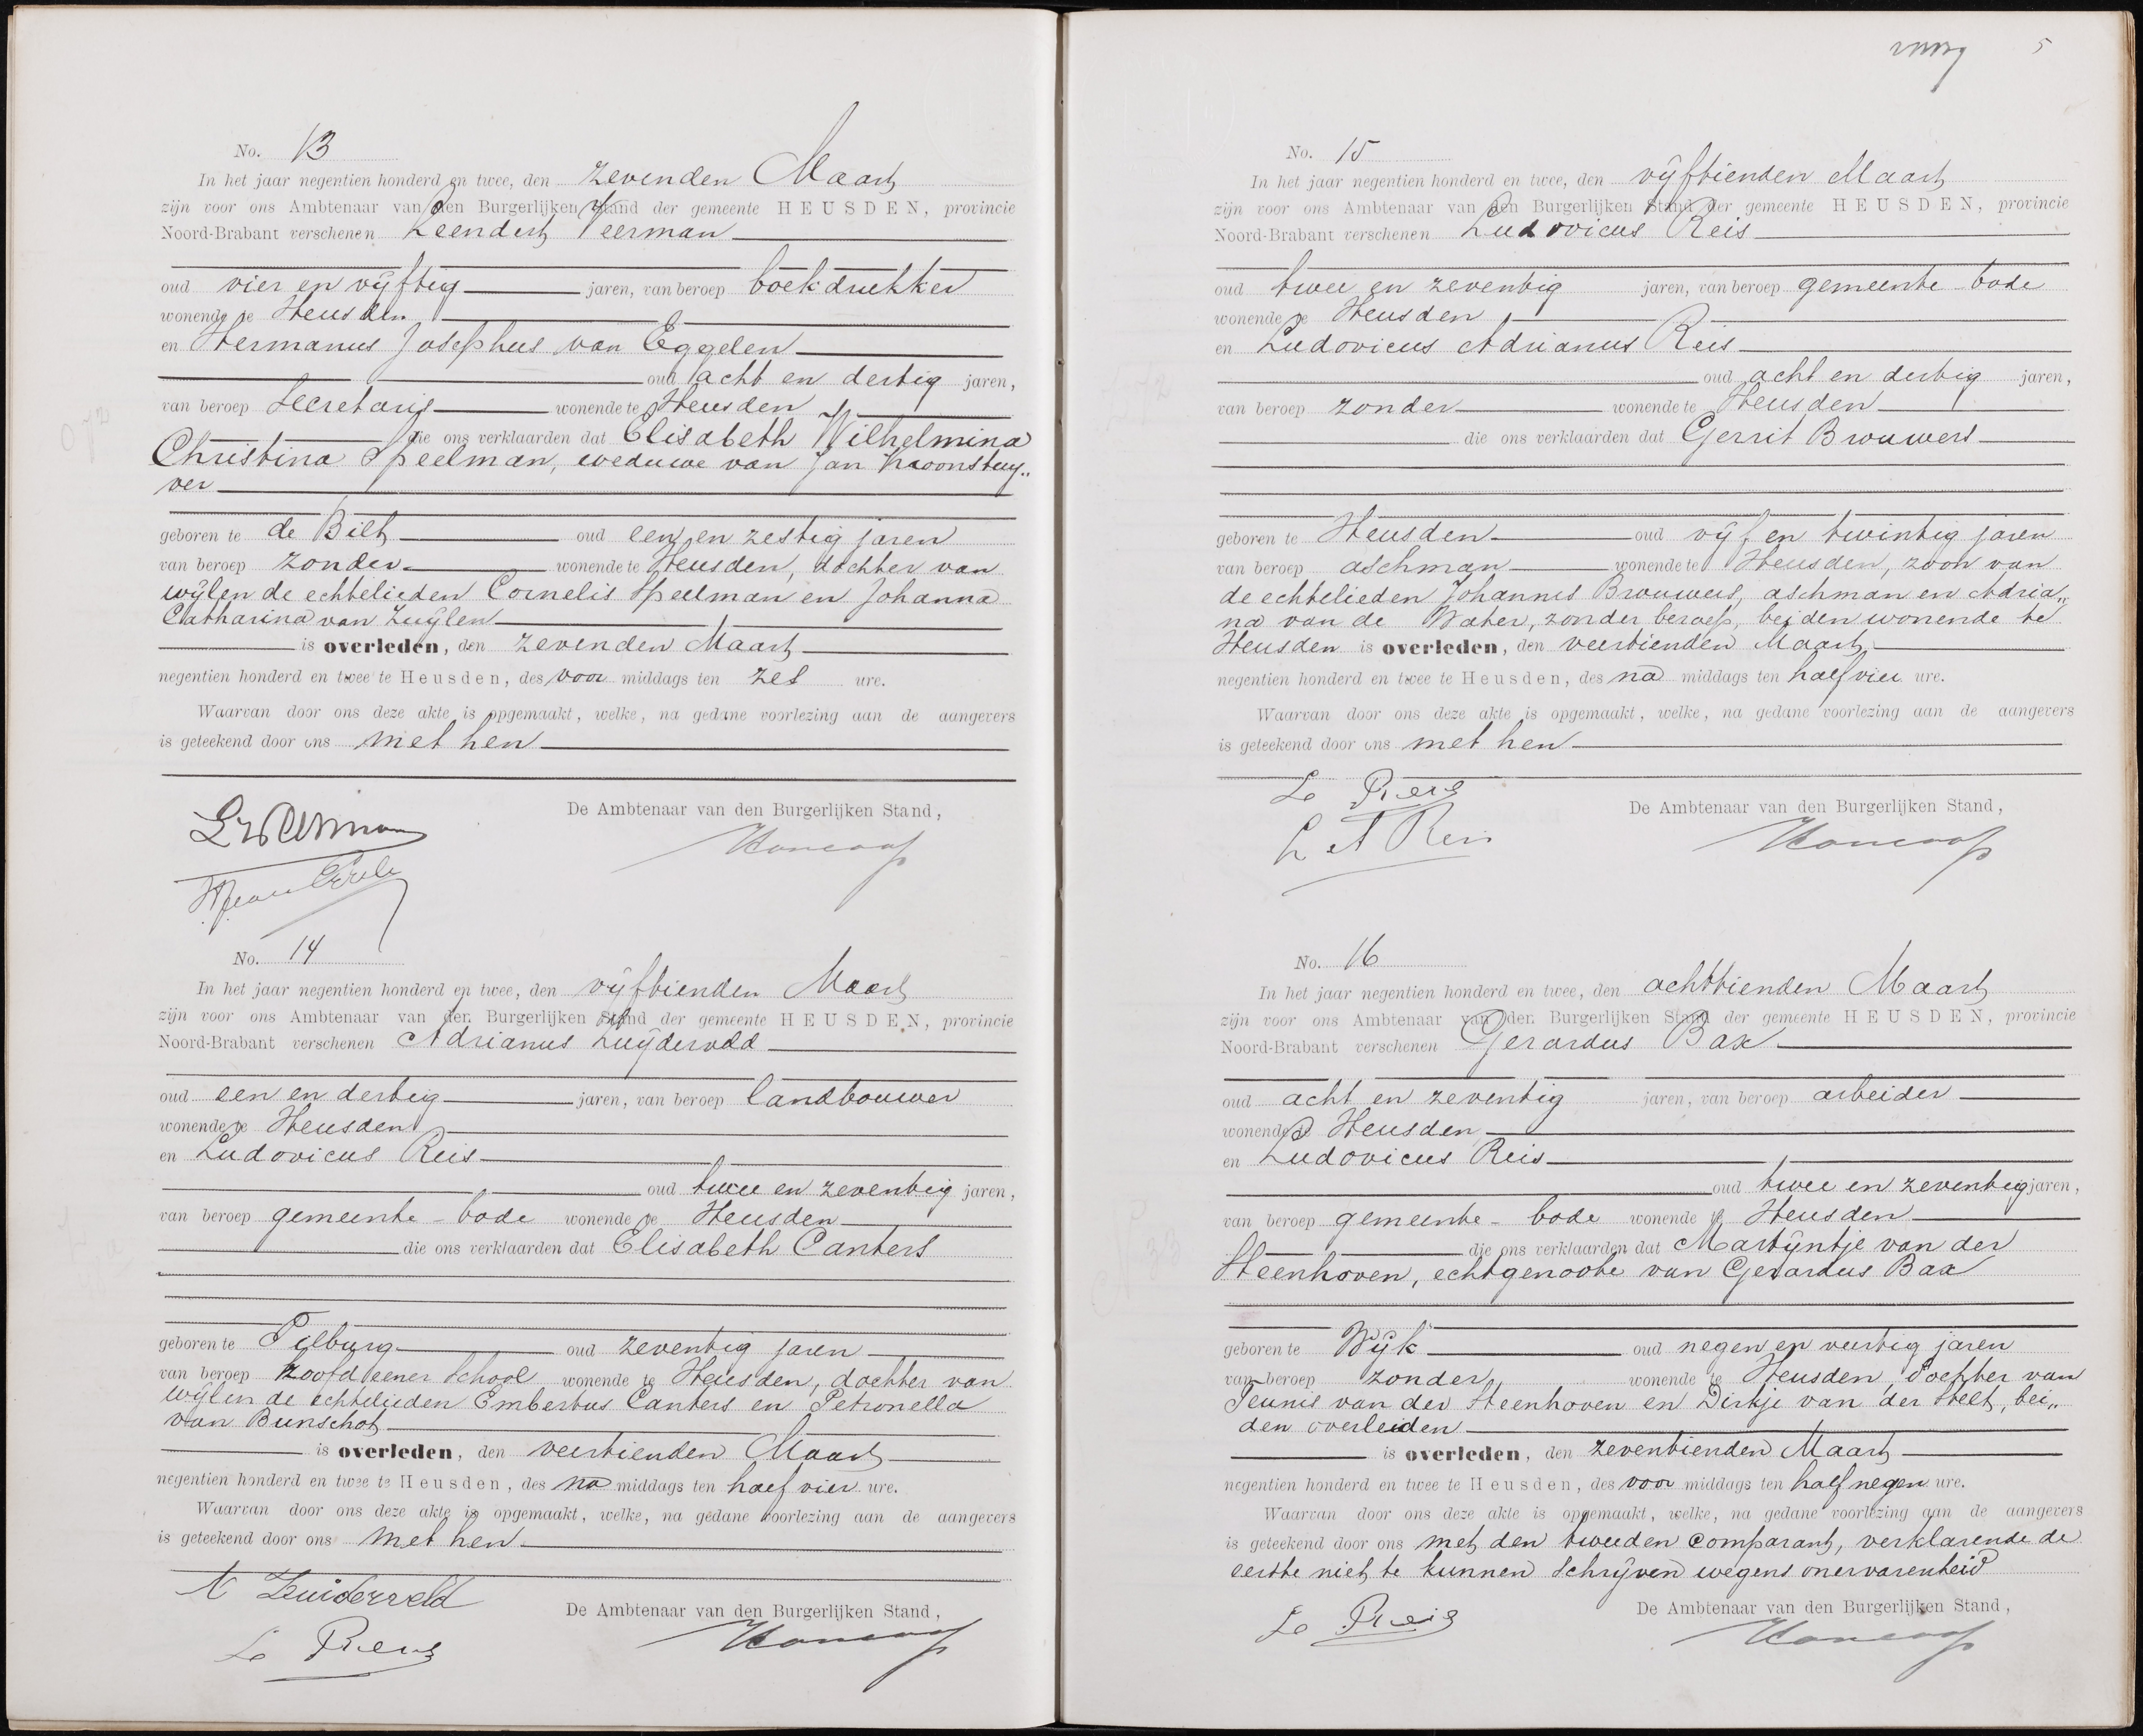 No. 13
In het jaar negentien honderd en twee, den zevenden Maart
zijn voor ons Ambtenaar van den Burgerlijken Stand der gemeente HEUSDEN, provincie
Noord-Brabant verschenen Leendert Veerman
oud vier en vijftig jaren, van beroep boekdrukker
wonende te Heusden
en Hermanus Josephus van Eggelen
oud acht en dertig jaren,
van beroep Secretaris wonende te Heusden
die ons verklaarden dat Elisabeth Wilhelmina
Christina Speelman, weduwe van Jan Kroonstuy„
ver
geboren te de Bilt oud een en zestig jaren
van beroep zonder wonende te Heusden, dochter van
wijlen de echtelieden Cornelis Speelman en Johanna
Catharina van Zuijlen
is overleden, den zevenden Maart
negentien honderd en twee te Heusden, des voor middags ten zes ure.
Waarvan door ons deze akte is opgemaakt, welke, na gedane voorlezing aan de aangevers
is geteekend door ons met hen
De Ambtenaar van den Burgerlijken Stand,
L Veerman
Honcoop
No. 14
In het jaar negentien honderd en twee, den vijftienden Maart
zijn voor ons Ambtenaar van den Burgerlijken Stand der gemeente HEUSDEN, provincie
Noord-Brabant verschenen Adrianus Zuijderveld
oud een en dertig jaren, van beroep landbouwer
wonende te Heusden
en Ludovicus Reis
oud twee en zeventig jaren,
van beroep gemeente-bode wonende te Heusden
die ons verklaarden dat Elisabeth Canters
geboren te Tilburg oud zeventig jaren
van beroep hoofd eener School wonende te Heusden, dochter van
wijlen de echtelieden Embertus Canters en Petronella
van Bunschot
is overleden, den veertienden Maart
negentien honderd en twee te Heusden, des na middags ten half vier ure.
Waarvan door ons deze akte is opgemaakt, welke, na gedane voorlezing aan de aangevers
is geteekend door ons met hen
A Zuiderveld
De Ambtenaar van den Burgerlijken Stand,
L Reis
Honcoop
5
No. 15
In het jaar negentien honderd en twee, den vijftienden Maart
zijn voor ons Ambtenaar van den Burgerlijken Stand der gemeente HEUSDEN, provincie
Noord-Brabant verschenen Ludovicus Reis
oud twee en zeventig jaren, van beroep gemeente-bode
wonende te Heusden
en Ludovicus Adrianus Reis
oud acht en dertig jaren,
van beroep zonder wonende te Heusden
die ons verklaarden dat Gerrit Brouwers
geboren te Heusden oud vijf en twintig jaren
van beroep aschman wonende te Heusden, zoon van
de echtelieden Johannes Brouwers, aschman en Adria„
na van de Water, zonder beroep, beiden wonende te
Heusden is overleden, den veertienden Maart
negentien honderd en twee te Heusden, des na middags ten half vier ure.
Waarvan door ons deze akte is opgemaakt, welke, na gedane voorlezing aan de aangevers
is geteekend door ons met hen
L Reis
De Ambtenaar van den Burgerlijken Stand,
L A Reis
Honcoop
No. 16
In het jaar negentien honderd en twee, den achttienden Maart
zijn voor ons Ambtenaar van den Burgerlijken Stand der gemeente HEUSDEN, provincie
Noord-Brabant verschenen Gerardus Bax
oud acht en zeventig jaren, van beroep arbeider
wonende te Heusden
en Ludovicus Reis
oud twee en zeventig jaren,
van beroep gemeente-bode wonende te Heusden
die ons verklaarden dat Martijntje van der
Steenhoven, echtgenoote van Gerardus Bax
geboren te Wijk oud negen en veertig jaren
van beroep zonder wonende te Heusden, dochter van
Teunis van der Steenhoven en Dirkje van der Stelt, bei„
den overleden
is overleden, den zeventienden Maart
negentien honderd en twee te Heusden, des voor middags ten half negen ure.
Waarvan door ons deze akte is opgemaakt, welke, na gedane voorlezing aan de aangevers
is geteekend door ons met den tweeden comparant, verklarende de
eerste niet te kunnen schrijven wegens onervarenheid
De Ambtenaar van den Burgerlijken Stand,
L Reis
Honcoop